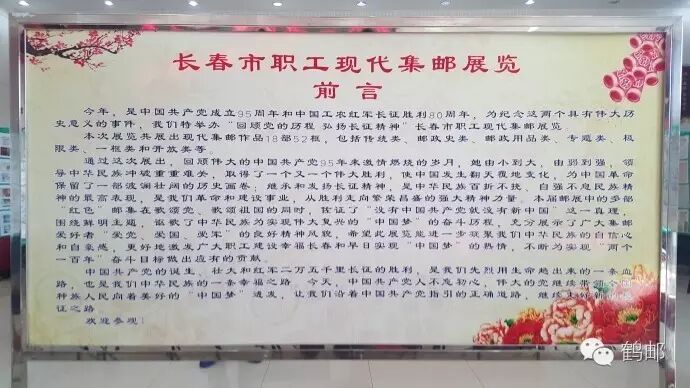 长春市职工现代集邮展览
前言
今年，是中国共产党成立95周年和中国工农红军长征胜利80周年，为纪念这两个具有伟大历
史意义的事件，我们特举办"回顾党的历程 弘扬长征精神"长春市职工现代集邮展览。
本次展览共展出现代集邮作品18部52框，包括传统类、邮政史类、邮政用品类、专题类、极
限类、一框类和开放类等。
通过这次展出，回顾伟大的中国共产党95年来激情燃烧的岁月，她由小到大，由弱到强，领
导中华民族冲破重重难关，取得了一个又一个伟大胜利，使中国发生翻天覆地变化，为中国革命
保留了一部波澜壮阔的历史画卷；继承和发扬长征精神，是中华民族百折不挠、自强不息民族精
神的最高表现，是我们革命和建设事业，从胜利走向繁荣昌盛的强大精神力量。本届邮展中的多部
"红色"邮集在歌颂党、歌颂祖国的同时，佐证了"没有中国共产党就没有新中国"这一真理，
围绕鲜明主题，讴歌了中华民族为实现伟大复兴的"中国梦"的奋斗历程，充分展示了广大集邮
爱好者"爱党、爱国、爱军"的良好精神风貌，希望此展览能进一步凝聚我们中华民族的自信心
和自豪感，更好地激发广大职工建设幸福长春和早日实现"中国梦"的热情，不断为实现"两个
一百年"奋斗目标做出应有的贡献。
中国共产党的诞生、壮大和红军二万五千里长征的胜利，是我们先烈用生命趟出来的一条血
路，也是我们中华民族的一条幸福之路。今天，中国共产党人不忘初心，伟大的党继续带领全国
种族人民向着美好的"中国梦"进发，让我们沿着中国共产党指引的正确道路，继续走好新的长
征之路。
欢迎参观！
鹤邮